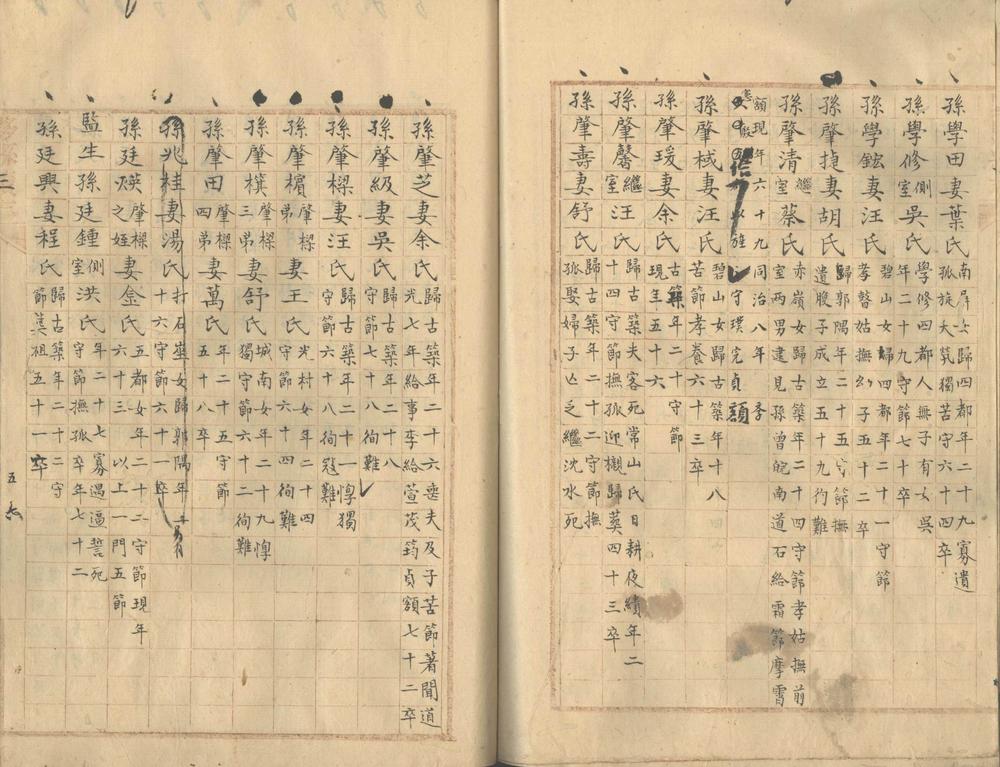 孫學田妻葉氏南岸女歸四都年二十九寡遺
孤旋夭煢獨苦守六十四卒
孫學修側室吳氏學修四都人無子有女吳
年二十九守節七十卒
孫學鋐妻汪氏碧山女歸四都年二十一守節
孝瞽姑撫幼子五十二卒
孫肇捷妻胡氏歸郭隅年二十五守節撫
遺腹子成立五十九徇難
孫肇清繼室蔡氏赤嶺女歸古築年二十四守節孝姑撫前
室兩男逮見孫曾皖南道石給霜節摩霄
額現年六十九同治八年季
守璞完貞額
孫肇棫妻汪氏碧山女歸古築年十八
苦節孝養六十三卒
孫肇瑗妻余氏古築年二十守節
現年五十六
孫肇馨繼室汪氏歸古築夫客死常山氏日耕夜績年二
十四守節撫孤迎櫬歸葬四十三卒
孫肇壽妻舒氏歸古築年二十二守節撫
孤娶婦子亡乏繼沈水死
孫肇芝妻余氏歸古築年二十六喪夫及子苦節著聞道
光七年給事李給萱茂筠貞額七十二卒
孫肇級妻吳氏歸古築年二十八
守節七十八徇難
孫肇樑妻汪氏歸古築年二十一惸獨
守節六十八徇寇難
孫肇樑弟妻王氏光村女年二十四
守節六十四徇難
孫肇樑三弟妻舒氏城南女年二十九惸
獨守節六十二徇難
孫肇田肇樑四弟妻萬氏年二十五守節
五十八卒
孫兆桂妻湯氏打石壟女歸郭隅年二十
六守節六十一卒
孫廷煐肇樑之姪妻金氏五都女年二十二守節現年
六十三以上一門五節
監生孫廷鍾側室洪氏年二十七寡遇逼誓死
守節撫孤卒年七十二
孫廷興妻程氏歸古築年二十二守
節葬祖五十一卒
三
五